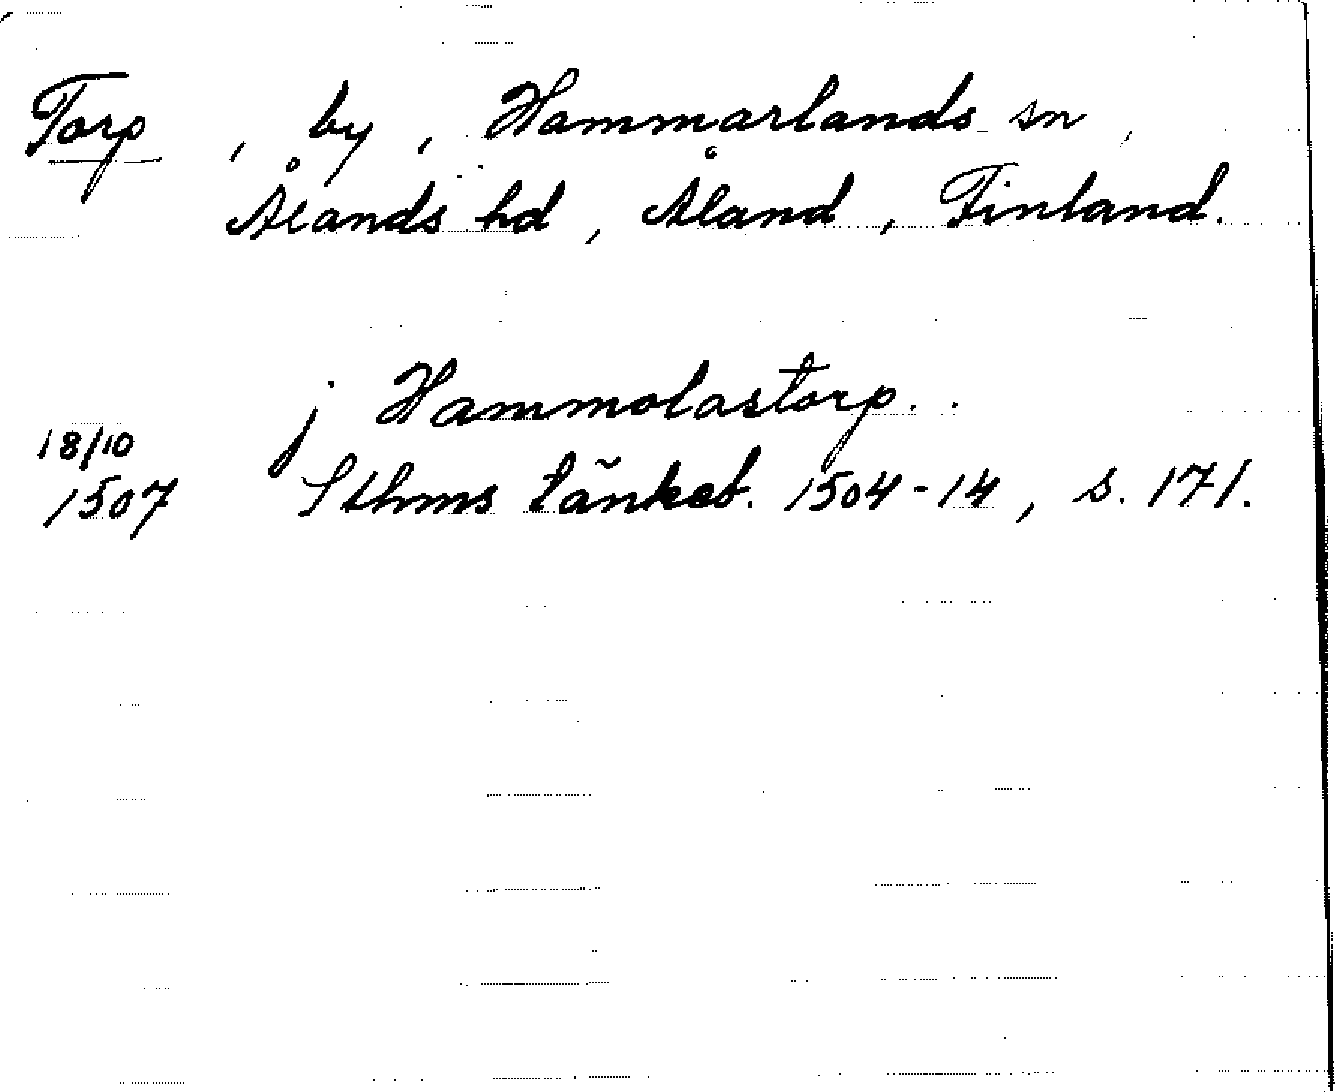 Torp, by, Hammarlands sn,
Ålands hd, Åland, Finland.
j Hammolastorp..
18/10
1507 Sthms tänkeb. 1504-14, s. 171.